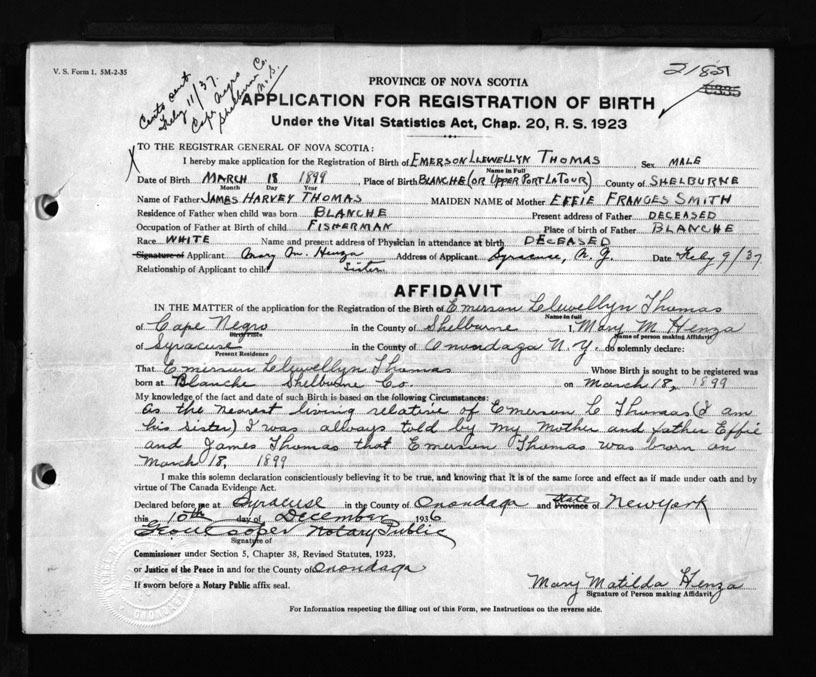 V. S. Form 1. 5M-2-35
Certs sent.
Feby 11/37.
Cape Negro
Shelburne Co.
N.S.
2182
PROVINCE OF NOVA SCOTIA
APPLICATION FOR REGISTRATION OF BIRTH
Under the Vital Statistics Act, Chap. 20, R. S. 1923
TO THE REGISTRAR GENERAL OF NOVA SCOTIA:
I hereby make application for the Registration of Birth of EMERSON LLEWELLYN THOMAS Sex MALE
Name in Full
Date of Birth MARCH 18 1899 Place of Birth BLANCHE (OR UPPER PORT LATOUR) County of SHELBURNE
Month Day Year
Name of Father JAMES HARVEY THOMAS MAIDEN NAME of Mother EFFIE FRANCES SMITH
Residence of Father when child was born BLANCHE Present address of Father DECEASED
Occupation of Father at Birth of child FISHERMAN Place of birth of Father BLANCHE
Race WHITE Name and present address of Physician in attendance at birth DECEASED
Signature of Applicant Mary M. Henza Address of Applicant Syracuse, N. Y. Date Feby 9/37
Relationship of Applicant to child Sister
AFFIDAVIT
IN THE MATTER of the application for the Registration of the Birth of Emerson Llewellyn Thomas
Name in full
of Cape Negro in the County of Shelburne I, Mary M Henza
Birth Place Name of person making Affidavit
of Syracuse in the County of Onondaga N.Y. do solemnly declare:
Present Residence
That Emerson Llewellyn Thomas Whose Birth is sought to be registered was
born at Blanche Shelburne Co. on March 18, 1899
My knowledge of the fact and date of such Birth is based on the following Circumstances:
As the nearest living relative of Emerson L Thomas (I am
his sister) I was always told by my Mother and father Effie
and James Thomas that Emerson Thomas was born on
March 18, 1899
I make this solemn declaration conscientiously believing it to be true, and knowing that it is of the same force and effect as if made under oath and by
virtue of The Canada Evidence Act.
Declared before me at Syracuse in the County of Onondaga and Province State of New York
this 10th day of December 1936
Geo W Cooper Notary Public
Signature of
Commissioner under Section 5, Chapter 38, Revised Statutes, 1923,
or Justice of the Peace in and for the County of Onondaga
If sworn before a Notary Public affix seal.
Mary Matilda Henza
Signature of Person making Affidavit
For Information respecting the filling out of this Form, see Instructions on the reverse side.